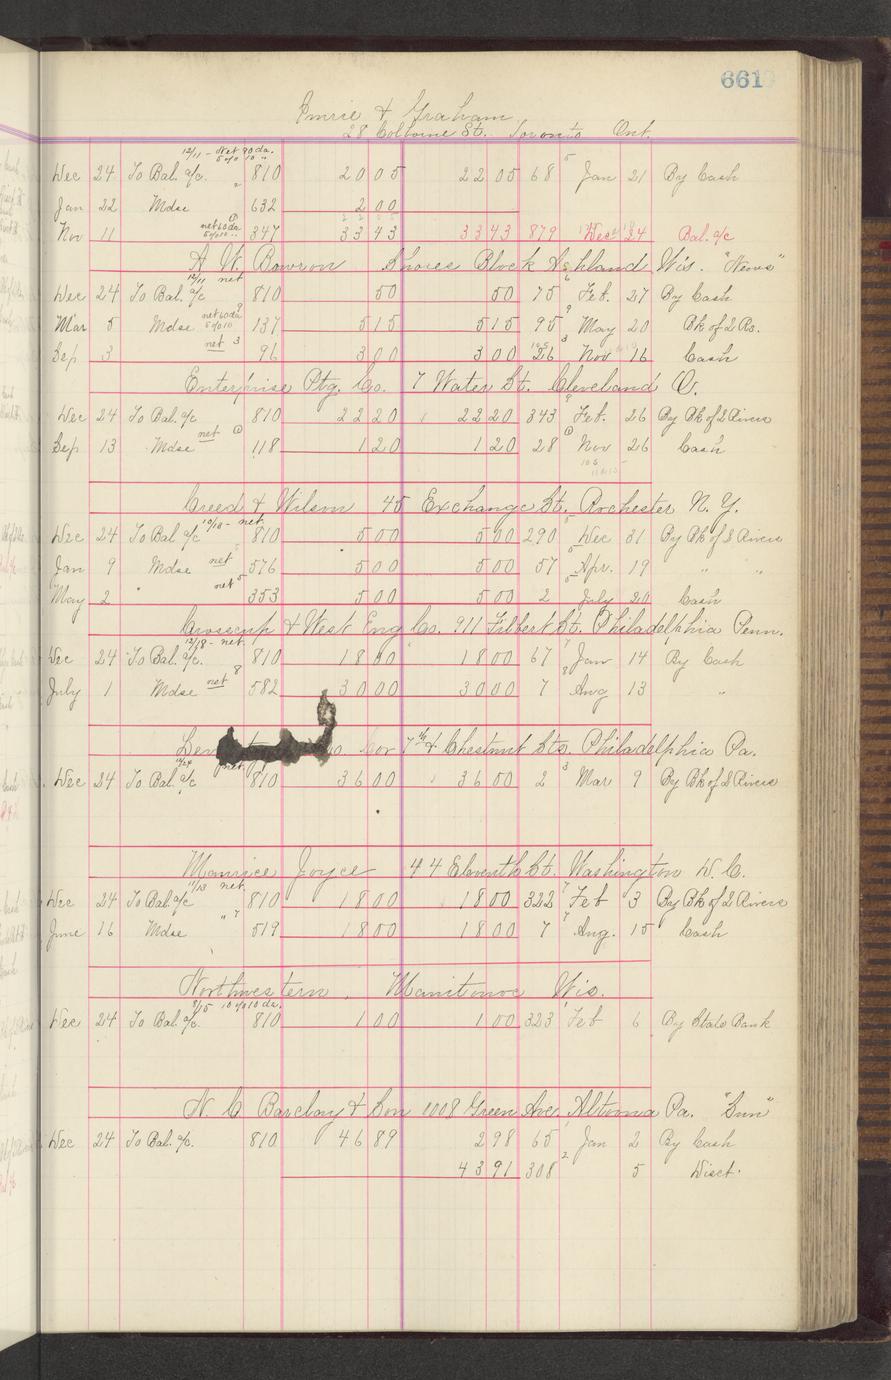 661
Imrie & Graham
28 Colborne St. Toronto Ont.
12/11 - Net 90 da.
5 o/o 10 "
Dec 24 To Bal. a/c. 810 2005 2205 68 5 Jan 21 By Cash
Jan 22 Mdse 632 200
Nov 11 net 60 da 5 o/o 10 " 347 3343 3343 879 Dec 24 Bal. a/c
A. W. Bowron Shores Block Ashland Wis. "News"
12/11 net
Dec 24 To Bal. a/c 810 50 50 75 Feb. 27 By Cash
Mar 5 Mdse net 60 da 5 o/o 10 137 515 515 95 May 20 Bk of 2 Rs.
Sep 3 net 3 96 300 300 26 Nov 16 Cash
Enterprise Ptg. Co. 7 Water St. Cleveland O.
Dec 24 To Bal. a/c 810 2220 2220 343 Feb. 26 By Bk of 2 Rivers
Sep 13 Mdse net 118 120 120 28 Nov 26 Cash
Creed & Wilson 45 Exchange St. Rochester N. Y.
12/18 - net
Dec 24 To Bal a/c 810 500 500 290 Dec 31 By Bk of 2 Rivers
Jan 9 Mdse net 576 500 500 57 Apr. 19 " "
May 2 net 5 353 500 500 2 July 20 Cash
Crosscup & West Eng Co. 911 Filbert St. Philadelphia Penn.
12/18 - net.
Dec 24 To Bal. a/c. 810 1800 1800 67 7 Jan 14 By Cash
July 1 Mdse net 8 582 3000 3000 7 8 Aug 13 "
Co. Cor 7th & Chestnut Sts. Philadelphia Pa.
net
Dec 24 To Bal. a/c 810 3600 3600 2 3 Mar 9 By Bk of 2 Rivers
Maurice Joyce 44 Eleventh St. Washington D. C.
11/13 net.
Dec 24 To Bal. a/c 810 1800 1800 322 7 Feb 3 By Bk of 2 Rivers
June 16 Mdse " 7 519 1800 1800 7 7 Aug. 15 Cash
Northwestern, Manitowoc Wis.
8/15 10 o/o 10 da.
Dec 24 To Bal. a/c. 810 100 100 323 Feb 6 By State Bank
N. C Barclay & Son 1008 Green Ave. Altoona Pa. "Sun"
Dec 24 To Bal. a/c. 810 4689 298 65 Jan 2 By Cash
4391 308 2 5 Disct.